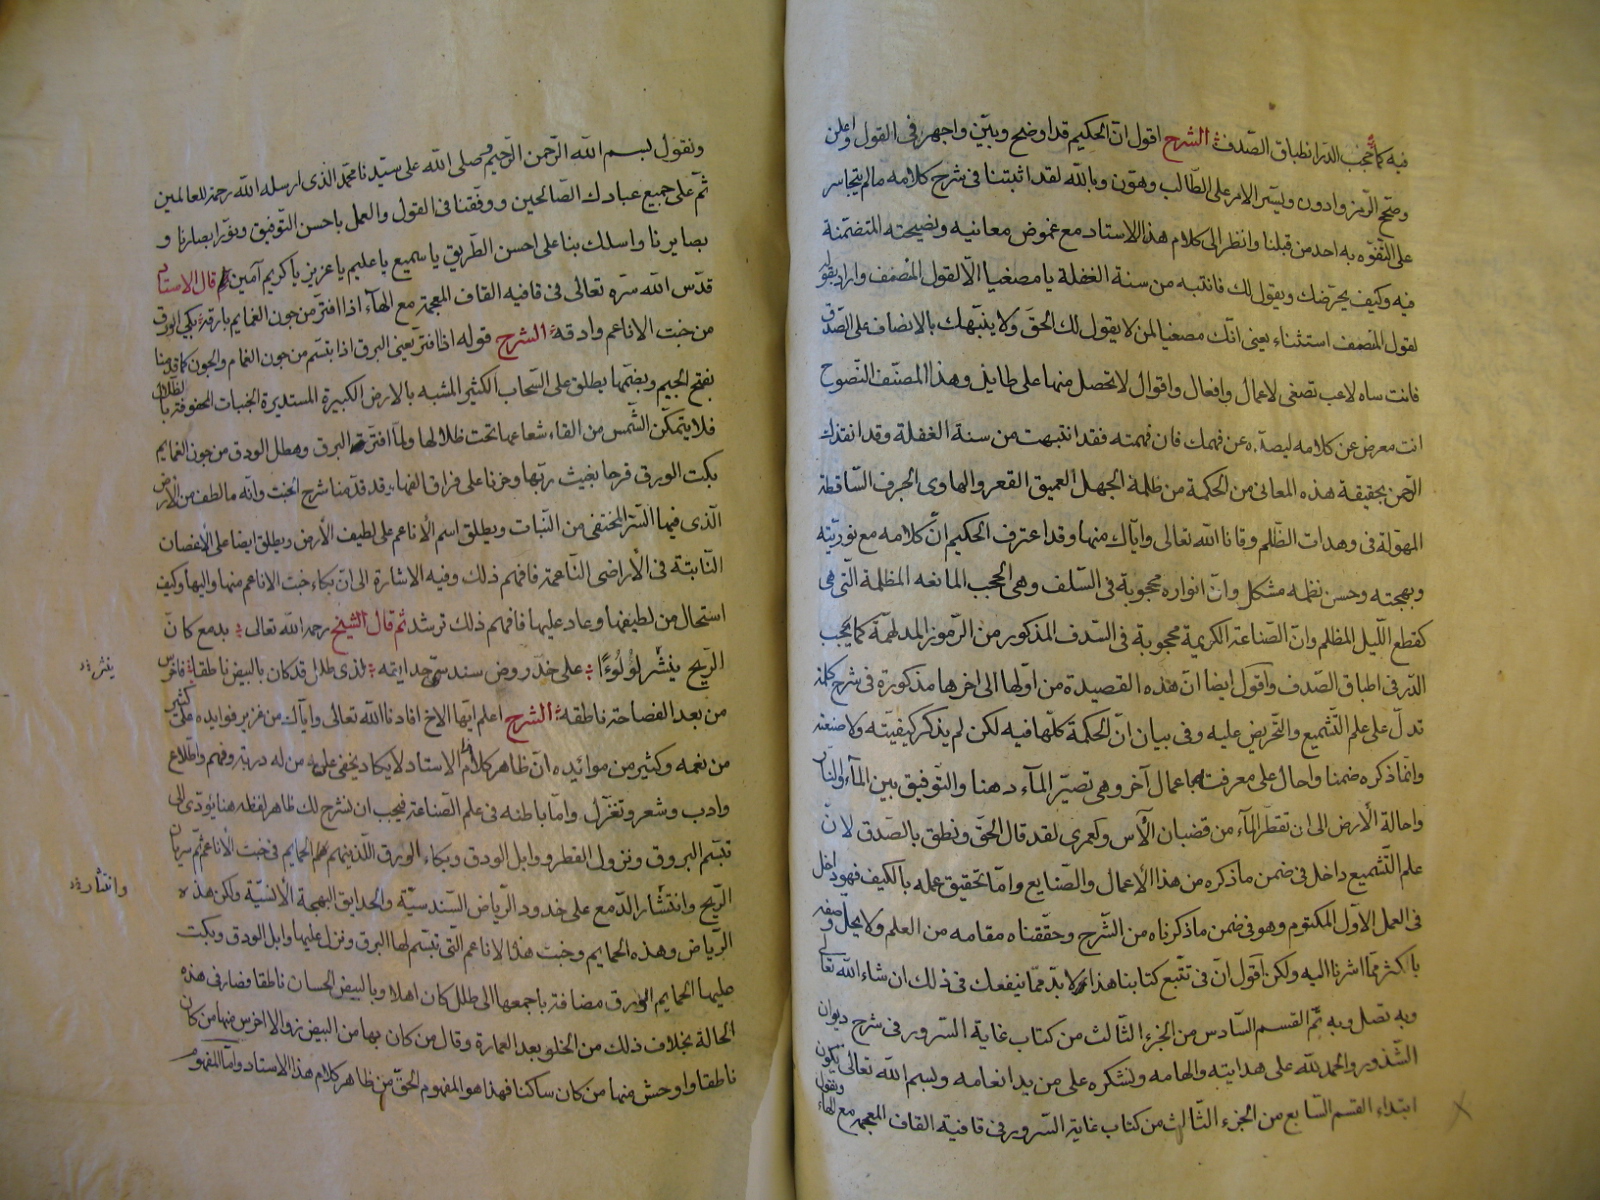 فيه كما يحجب الدر انطباق الصدف الشرح اقول ان الحكيم قد اوضح وبين واجهر في القول واعلن
وضح الرمز وادون ويسر الامر على الطالب وهون وبالله لقد اثبتنا في شرح كلامه مالم يتجاسر
على التفوه به احد من قبلنا وانظر الى كلام هذا الاستاد مع غموض معانيه ونصيحته المتضمنة
فيه وكيف يحرضك ويقول لك فانتبه من سنة الغفلة يا مصغيا الا لقول المصنف واراد بقوله
لقول المصنف استثناء يعني انك مصغيا لمن لا يقول لك الحق ولا ينبهك بالانصاف على الصدق
فانت ساه لاعب تصغى لاعمال وافعال واقوال لا تحصل منها على طايل وهذا المصنف النصوح
انت معرض عن كلامه ليصده عن فهمك فان فهمته فقد انتبهت من سنة الغفلة وقد انقذك
الرحمن بحقيقة هذه المعانى من الحكمة من ظلمة الجهل العميق القعر والهاوى الجرف الساقطة
المهولة في وهدات الظلم وقانا الله تعالى واياك منها وقد اعترف الحكيم ان كلامه مع نوريته
وبهجته وحسن نظمه مشكل وان انواره محجوبة في السلف وهى الحجب المانعه المظلمة التي هى
كقطع الليل المظلم وان الصناعة الكريمة محجوبة في السدف المذكور من الرموز المدلهمة كما يحجب
الدر في اطباق الصدف واقول ايضا ان هذه القصيدة من اولها الى اخرها مذكورة في شرح كلمة
تدل على علم التشميع والتحريض عليه وفي بيان ان الحكمة كلها فيه لكن لم يذكر كيفيته ولا صنعته
وانما ذكره ضمنا واحال على معرفته باعمال آخر وهى تصير الماء دهنا والتوفيق بين الماء والنار
واحالة الارض الى ان تقطر الماء من قضبان الآس ولعمرى لقد قال الحق ونطق بالصدق لان
علم التشميع داخل في ضمن ما ذكره من هذا الاعمال والصنايع واما تحقيق عمله بالكيف فهو داخل
في العمل الاول المكتوم وهو في ضمن ما ذكرناه من الشرح وحققناه مقامه من العلم ولا يحل وصفه
باكثر مما اشرنا اليه ولكن اقول ان في تتبع كتابنا هذا لا بد مما ينفعك في ذلك ان شاء الله تعالى
وبه نصل وبه تم القسم السادس من الجزء الثالث من كتاب غاية السرور في شرح ديوان
الشذور والحمد لله على هدايته والهامه ونشكره على مزيد انعامه وبسم الله تعالى يكون
ابتداء القسم السابع من الجزء الثالث من كتاب غاية السرور في قافية القاف المعجمة مع الهاء ونقول
ونقول بسم الله الرحمن الرحيم وصلى الله على سيدنا محمد الذى ارسله الله رحمة للعالمين
ثم على جميع عبادك الصالحين ووفقنا في القول والعمل باحسن التوفيق ونور ابصارنا و
بصايرنا واسلك بنا على احسن الطريق يا سميع يا عليم يا عزيز يا كريم آمين قال الاستاد
قدس الله سره تعالى في قافيه القاف المعجمة مع الهاء اذا افتر من جون الغمايم بارقه بكى الورق
من خبت الاناعم وادقه الشرح قوله اذا افتر يعنى البرق اذا ابتسم من جون الغمام والجون كما قدمنا
بفتح الجيم وبضمها يطلق على السحاب الكثير المشبه بالارض الكبيرة المستديرة الجنبات المحفوفة بالظلال
فلا يتمكن الشمس من القاء شعاعها تحت ظلالها ولما افتر البرق وهطل الودق من جون الغمايم
بكت الورق فرحا بغيث ربها وحزنا على فراق الفها قد قدمنا شرح الخبت وانه ما لطف من الارض
الذى فيها الستر المختفى من النبات ويطلق اسم الأناعم على لطيف الأرض ويطلق ايضا على الأغصان
النابتة في الأراضى الناعمة فافهم ذلك وفيه الاشارة الى ان بكاء خبت الاناعم منها واليها وكيف
استحال من لطيفها وعاد عليها فافهم ذلك ترشد ثم قال الشيخ رحمه الله تعالى بدمع كان
الريح ينشر لؤلوءًا على خد روض سندسى حدايقه لذى طلل قد كان بالبيض ناطقا فاخرس
من بعد الفصاحة ناطقه الشرح اعلم ايها الاخ افادنا الله تعالى واياك من غزير فوايده كثير
من نعمه وكثير من موائيده ان ظاهر كلام الاستاد لا يكاد يخفى على من له درية وفهم واطلاع
وادب وشعر وتغزل واما باطنه في علم الصناعة فيجب ان نشرح لك ظاهر لفظه هنا يؤدى الى
تبسم البروق ونزول القطر ووابل الودق وبكاء الورق اللذينهم هم الحمايم في خبت الأناعم ثم سريان
الريح وانتشار الدمع على خدود الرياض السندسية والحدايق البهجة الأنسية ولكن هذه
الرياض وهذه الحمايم وخبت هذا الاناعم التى تبسم لها البرق ونزل عليها وابل الودق وبكت
عليها الحمايم الورق مضافة باجمعها الى طلل كان اهلا وبالبيض الحسان ناطقا فصار في هذه
الحالة بخلاف ذلك من الخلو بعد العمارة وقال من كان بها من البيض زوالا اخرس منها من كان
ناطقا واوحش منها من كان ساكنا فهذا هو المفهوم الحق من ظاهر كلام هذا الاستاد واما المفهوم
ينثر
وانتثار